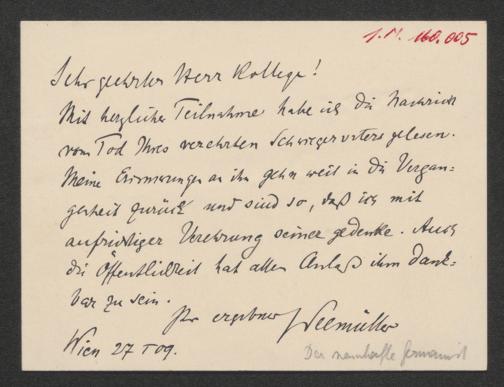 I.N. 160.005
Sehr geehrter Herr Kollege!
Mit herzlicher Teilnahme habe ich die Nachricht
vom Tod Ihres verehrten Schwiegervaters gelesen.
Meine Erinnerungen an ihn gehn weit in die Vergan-
genheit zurück und sind so, daß ich mit
aufrichtiger Verehrung seiner gedenke. Auch
die Öffentlichkeit hat allen Anlaß ihm dank-
bar zu sein.
Ihr ergebner Seemüller
Wien 27 I 09.
Der namhafte Germanist